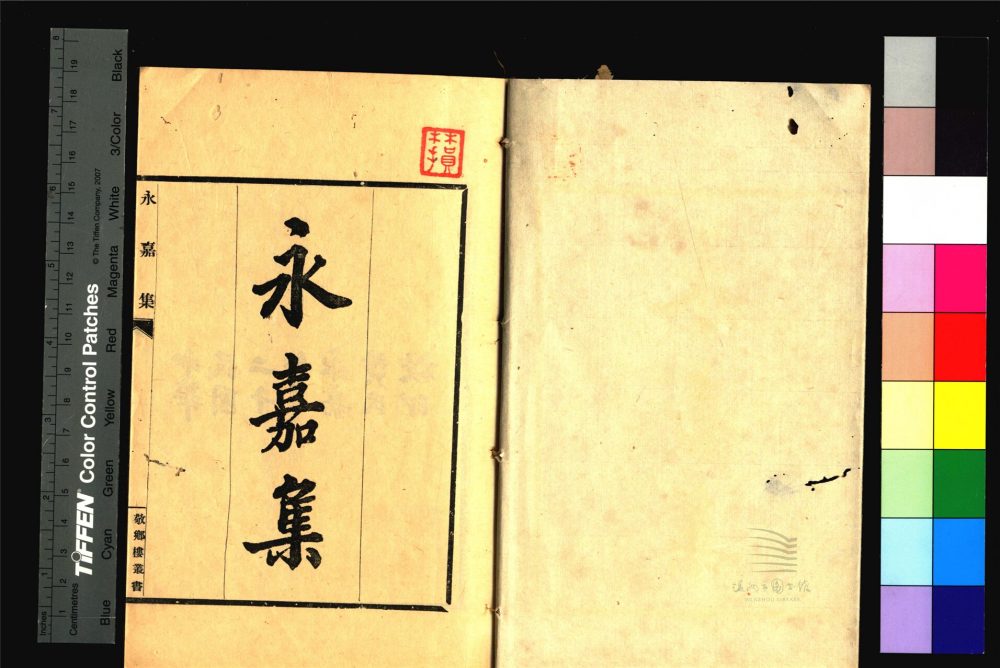 永嘉集
永嘉集
敬鄉樓叢書
溫州市圖書館
WENZHOU LIBRARY
8
7
6
5
4
3
2
1
Inches
19
18
17
16
15
14
13
12
11
10
9
8
7
6
5
4
3
2
1
Centimetres
TIFFEN® Color Control Patches
© The Tiffen Company, 2007
Blue
Cyan
Green
Yellow
Red
Magenta
White
3/Color
Black